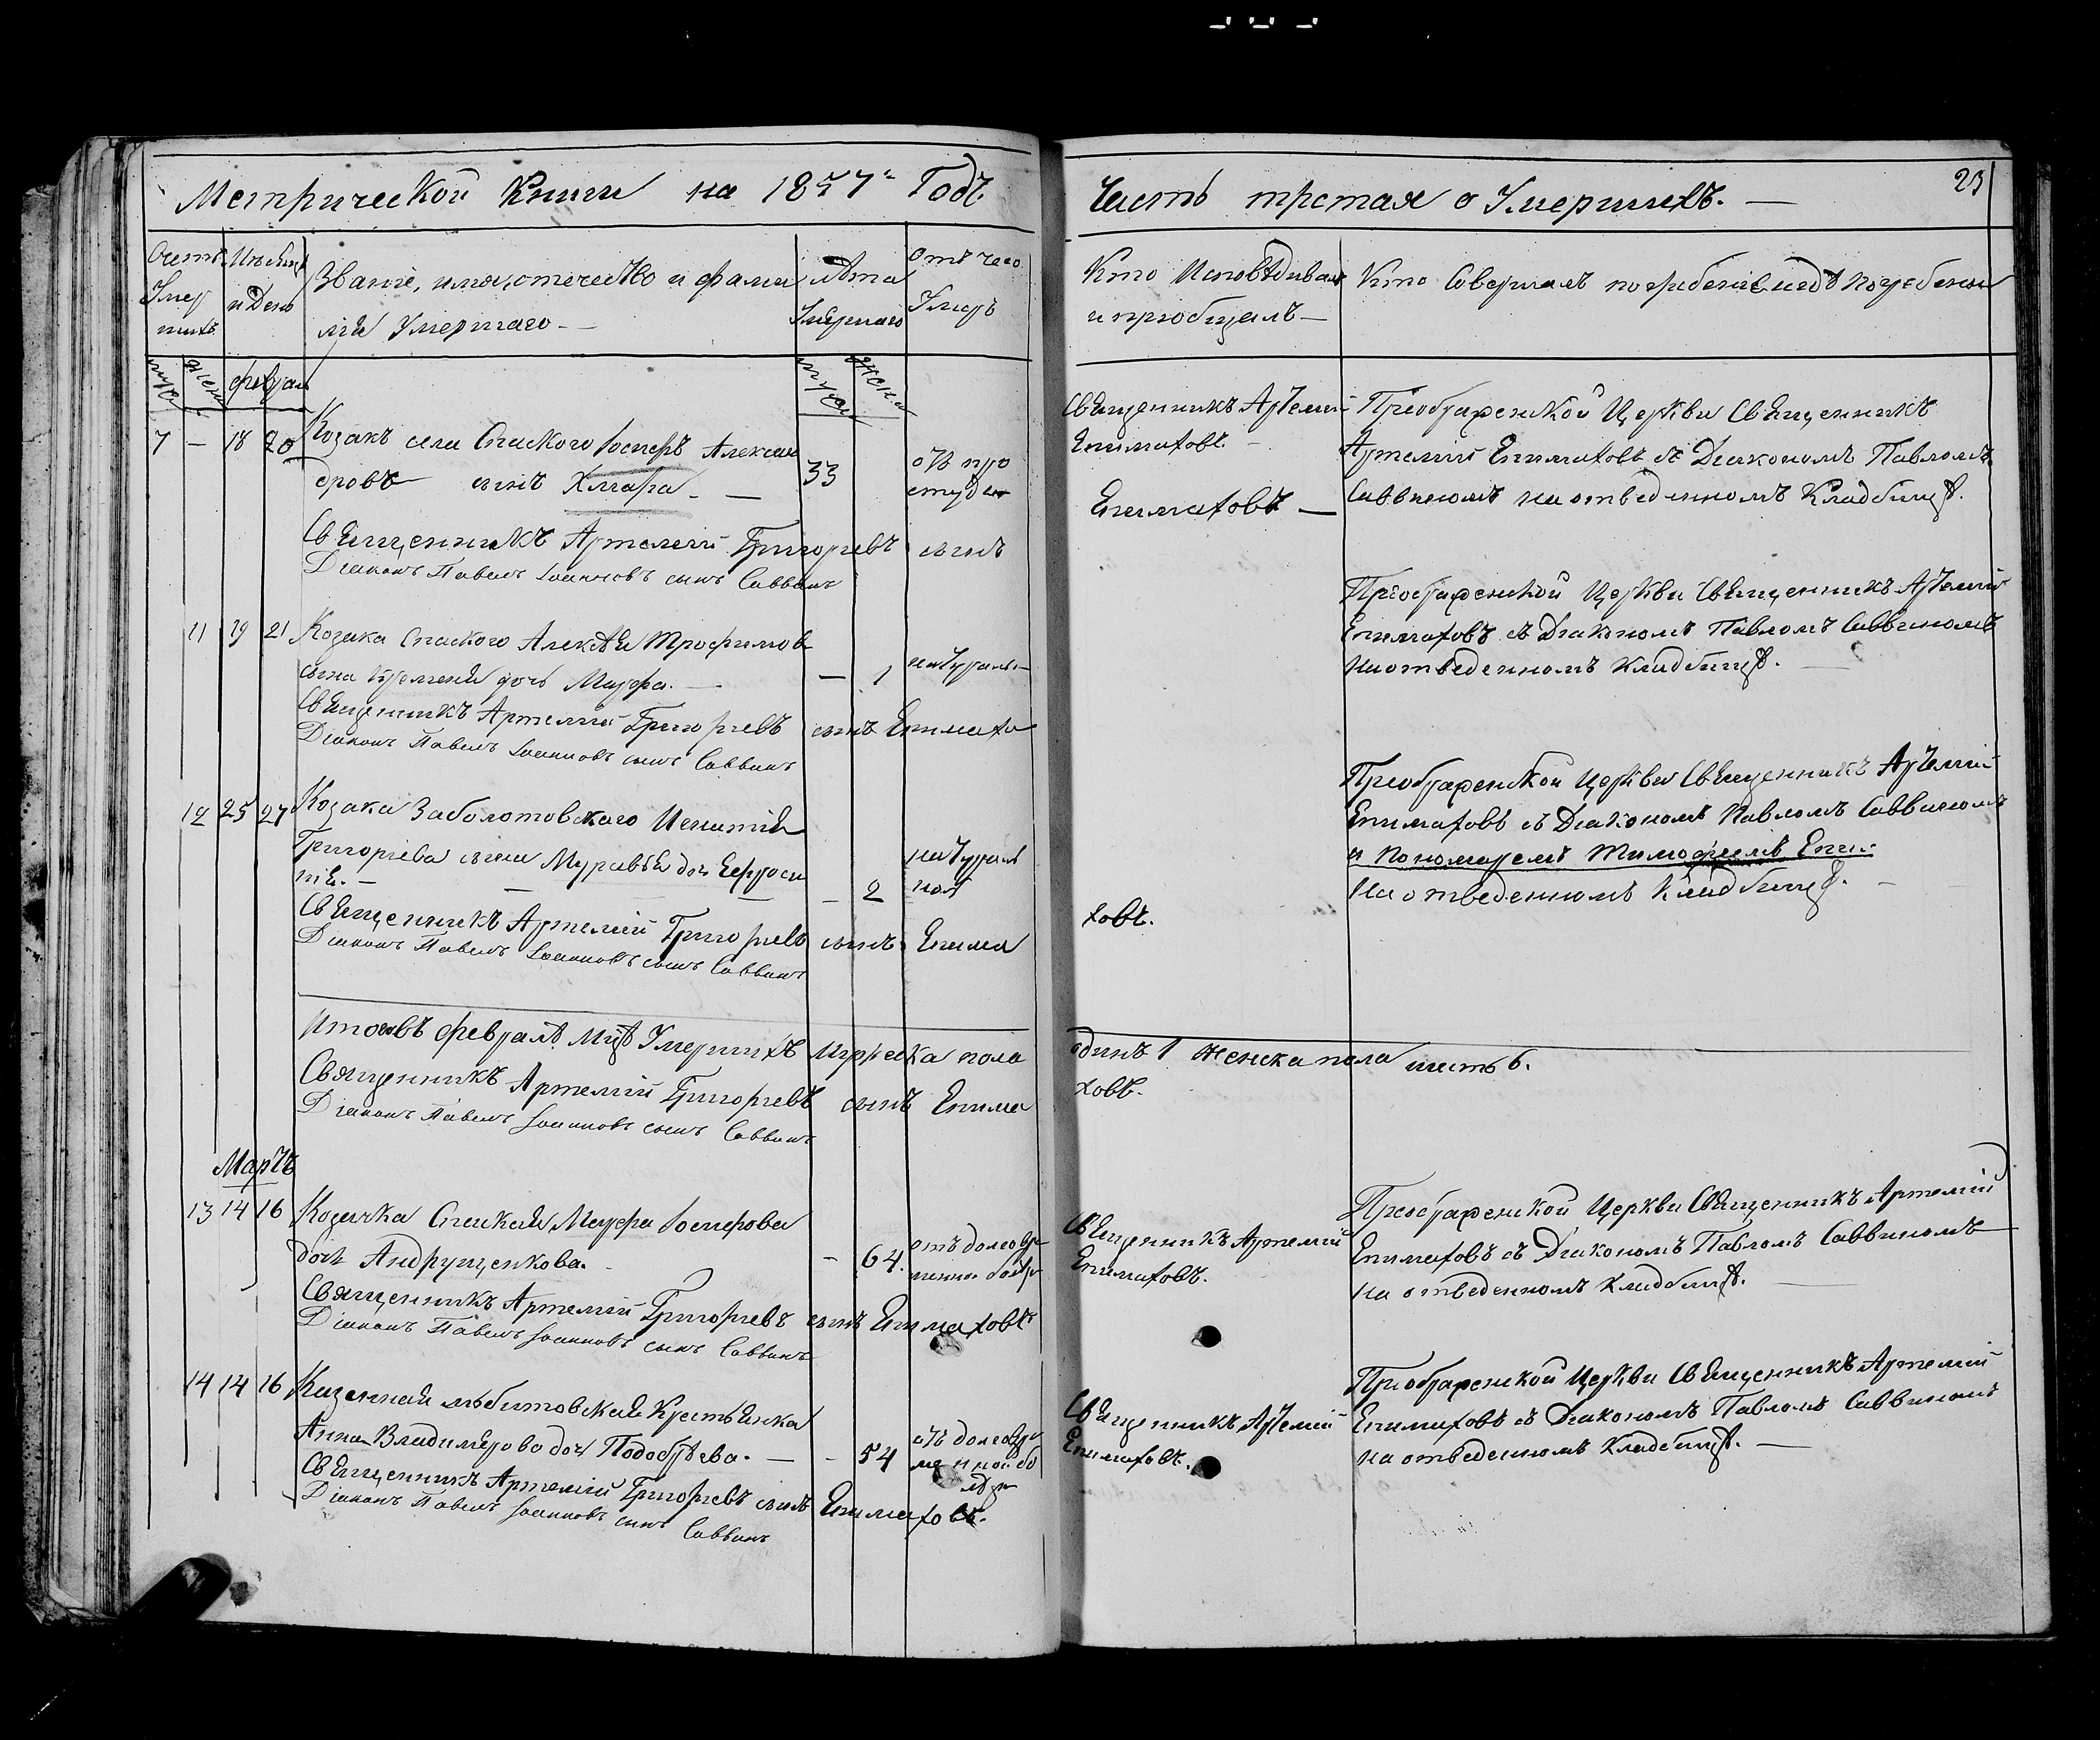 Метрической Книги на 1857й Годъ
Часть третая о Умершихъ.
23
Счетъ Умер шихъ
Мѣсяцъ и День
Званіе, имя, отечество и фами
лія Умершаго
Лѣта Умершаго
Отъ чего Умеръ
Кто Исповѣдивалъ
и пріобщалъ
Кто Совершалъ погребеніе и гдѣ погребены
муж женс февраль
муж женс
7 — 18 20 Козакъ села Спаского Іосифъ Алексан
дровъ сынъ Хмара. — 33 отъ про
студы
Священникъ Артемій Григоріевъ сынъ
Діаконъ Павелъ Іоанновъ сынъ Саввинъ
Священникъ Артемій
Епимаховъ.
Епимаховъ —
Преображенской Церкви Священникъ
Артемій Епимаховъ съ Діакономъ Павломъ
Саввиномъ на отведенномъ Кладбищѣ.
11 19 21 Козака Спаского Алексѣя Трофимов
сына дочь Марфа. — 1 натураль
Священникъ Артемій Григоріевъ сынъ Епимахо
Діаконъ Павелъ Іоанновъ сынъ Саввинъ
Преображенской Церкви Священникъ Артемій
Епимаховъ съ Діакономъ Павломъ Саввиномъ
на отведенномъ Кладбищѣ.
12 25 27 Козака Заболотовского Игнатія
Григоріева сына Муравья дочь Ефроси
нія. — 2 натураль
ноя
Священникъ Артемій Григоріевъ сынъ Епима
Діаконъ Павелъ Іоанновъ сынъ Саввинъ
ховъ.
Преображенской Церкви Священникъ Артемій
Епимаховъ съ Діакономъ Павломъ Саввиномъ
и Пономаремъ Тимофіемъ Епи:
на отведенномъ Кладбищѣ.
Итого въ февралѣ Мцѣ Умершихъ Мужеска пола
одинъ 1 Женска пола шесть 6.
Священникъ Артемій Григоріевъ сынъ Епима
ховъ.
Діаконъ Павелъ Іоанновъ сынъ Саввинъ
Мартъ
13 14 16 Козачка Спаская Марфа Іосифова
дочь Андрущенкова. — 64. отъ долговре
менной болѣз
Священникъ Артемій Григоріевъ сынъ Епимаховъ
Діаконъ Павелъ Іоанновъ сынъ Саввинъ
Священникъ Артемій
Епимаховъ.
Преображенской Церкви Священникъ Артемій
Епимаховъ съ Діакономъ Павломъ Саввиномъ
на отведенномъ Кладбищѣ.
14 14 16 Казенная Крестьянка
Анна Владимерова дочь Подобѣева. — 54 отъ долговре
менной бо
лѣзн
Священникъ Артемій Григоріевъ сынъ Епимаховъ.
Діаконъ Павелъ Іоанновъ сынъ Саввинъ
Священникъ Артемій
Епимаховъ.
Преображенской Церкви Священникъ Артемій
Епимаховъ съ Діакономъ Павломъ Саввиномъ
на отведенномъ Кладбищѣ.